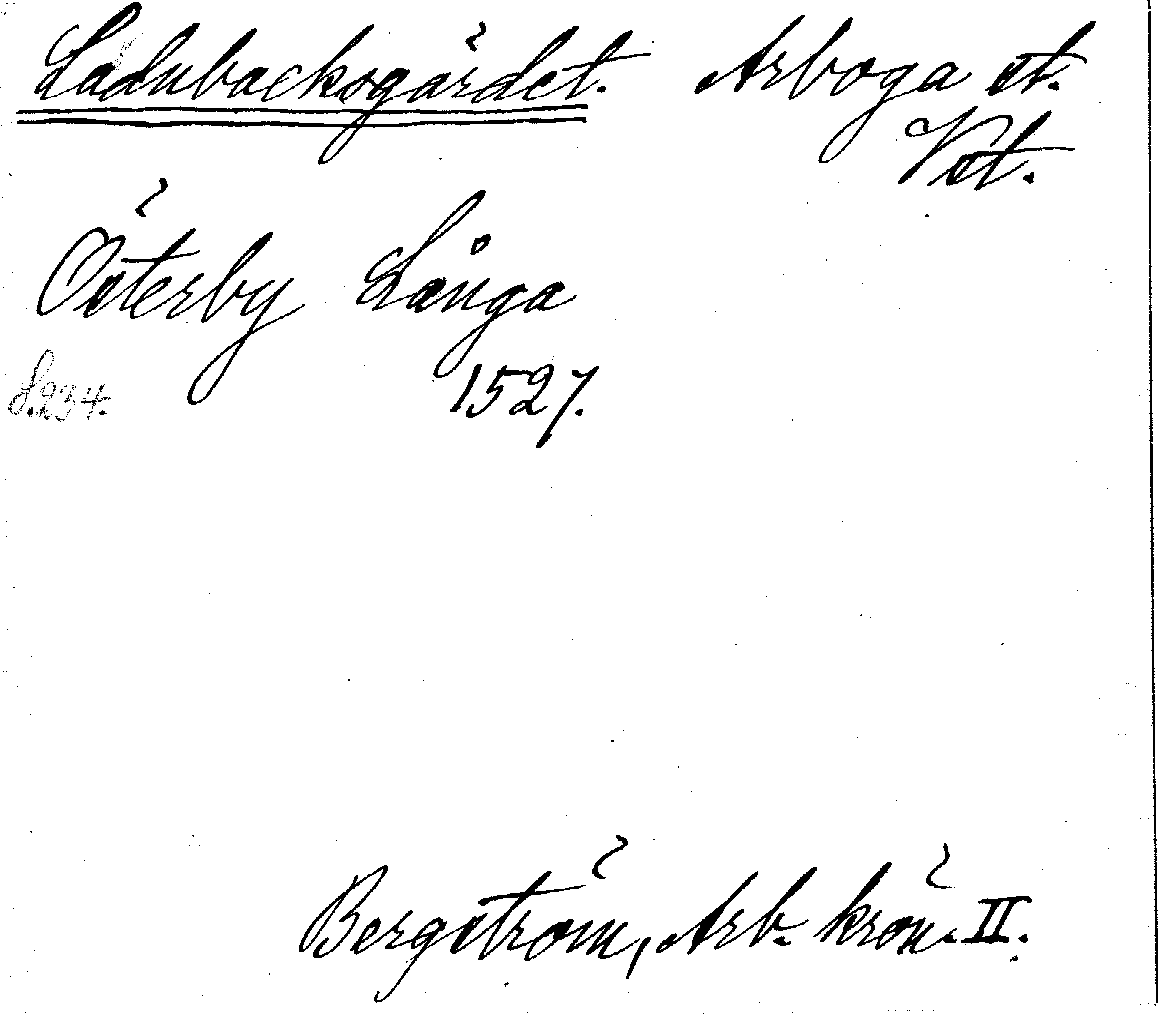 Ladubacksgärdet. Arboga st.
Vst.
Österby Långa
S. 234. 1527.
Bergström, Arb. krön. II.